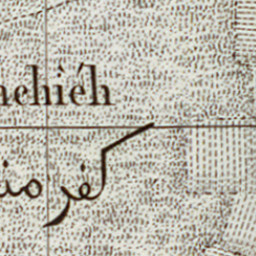 nchiéh
كفر من